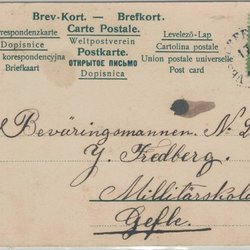 Brev-Kort. — Brefkort.
Carte Postale.
Weltpostverein
Postkarte.
ОТКРЫТОЕ ПИСЬМО
Dopisnica
respondenzkarte
Dopisnice
korespondencyjna
Briefkaart
Levelező-Lap
Cartolina postale
Union postale universelle
Post card
Beväringsmannen. N:
Y. Fredberg.
Millitärskola
Gefle.